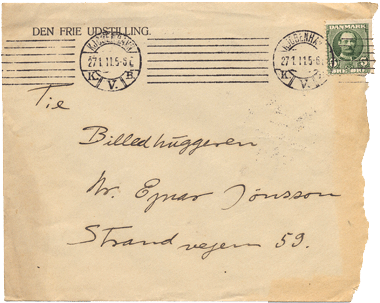 DEN FRIE UDSTILLING.
KJØBENHAVN
27.1.11.5-6E
K V. B
KJØBENHAVN
27.1.11.5-6E
K V.
DANMARK
5 5
ØRE ØRE
Tie
Billedhuggeren
Hr. Ejnar Jónsson
Strandvejen 59.